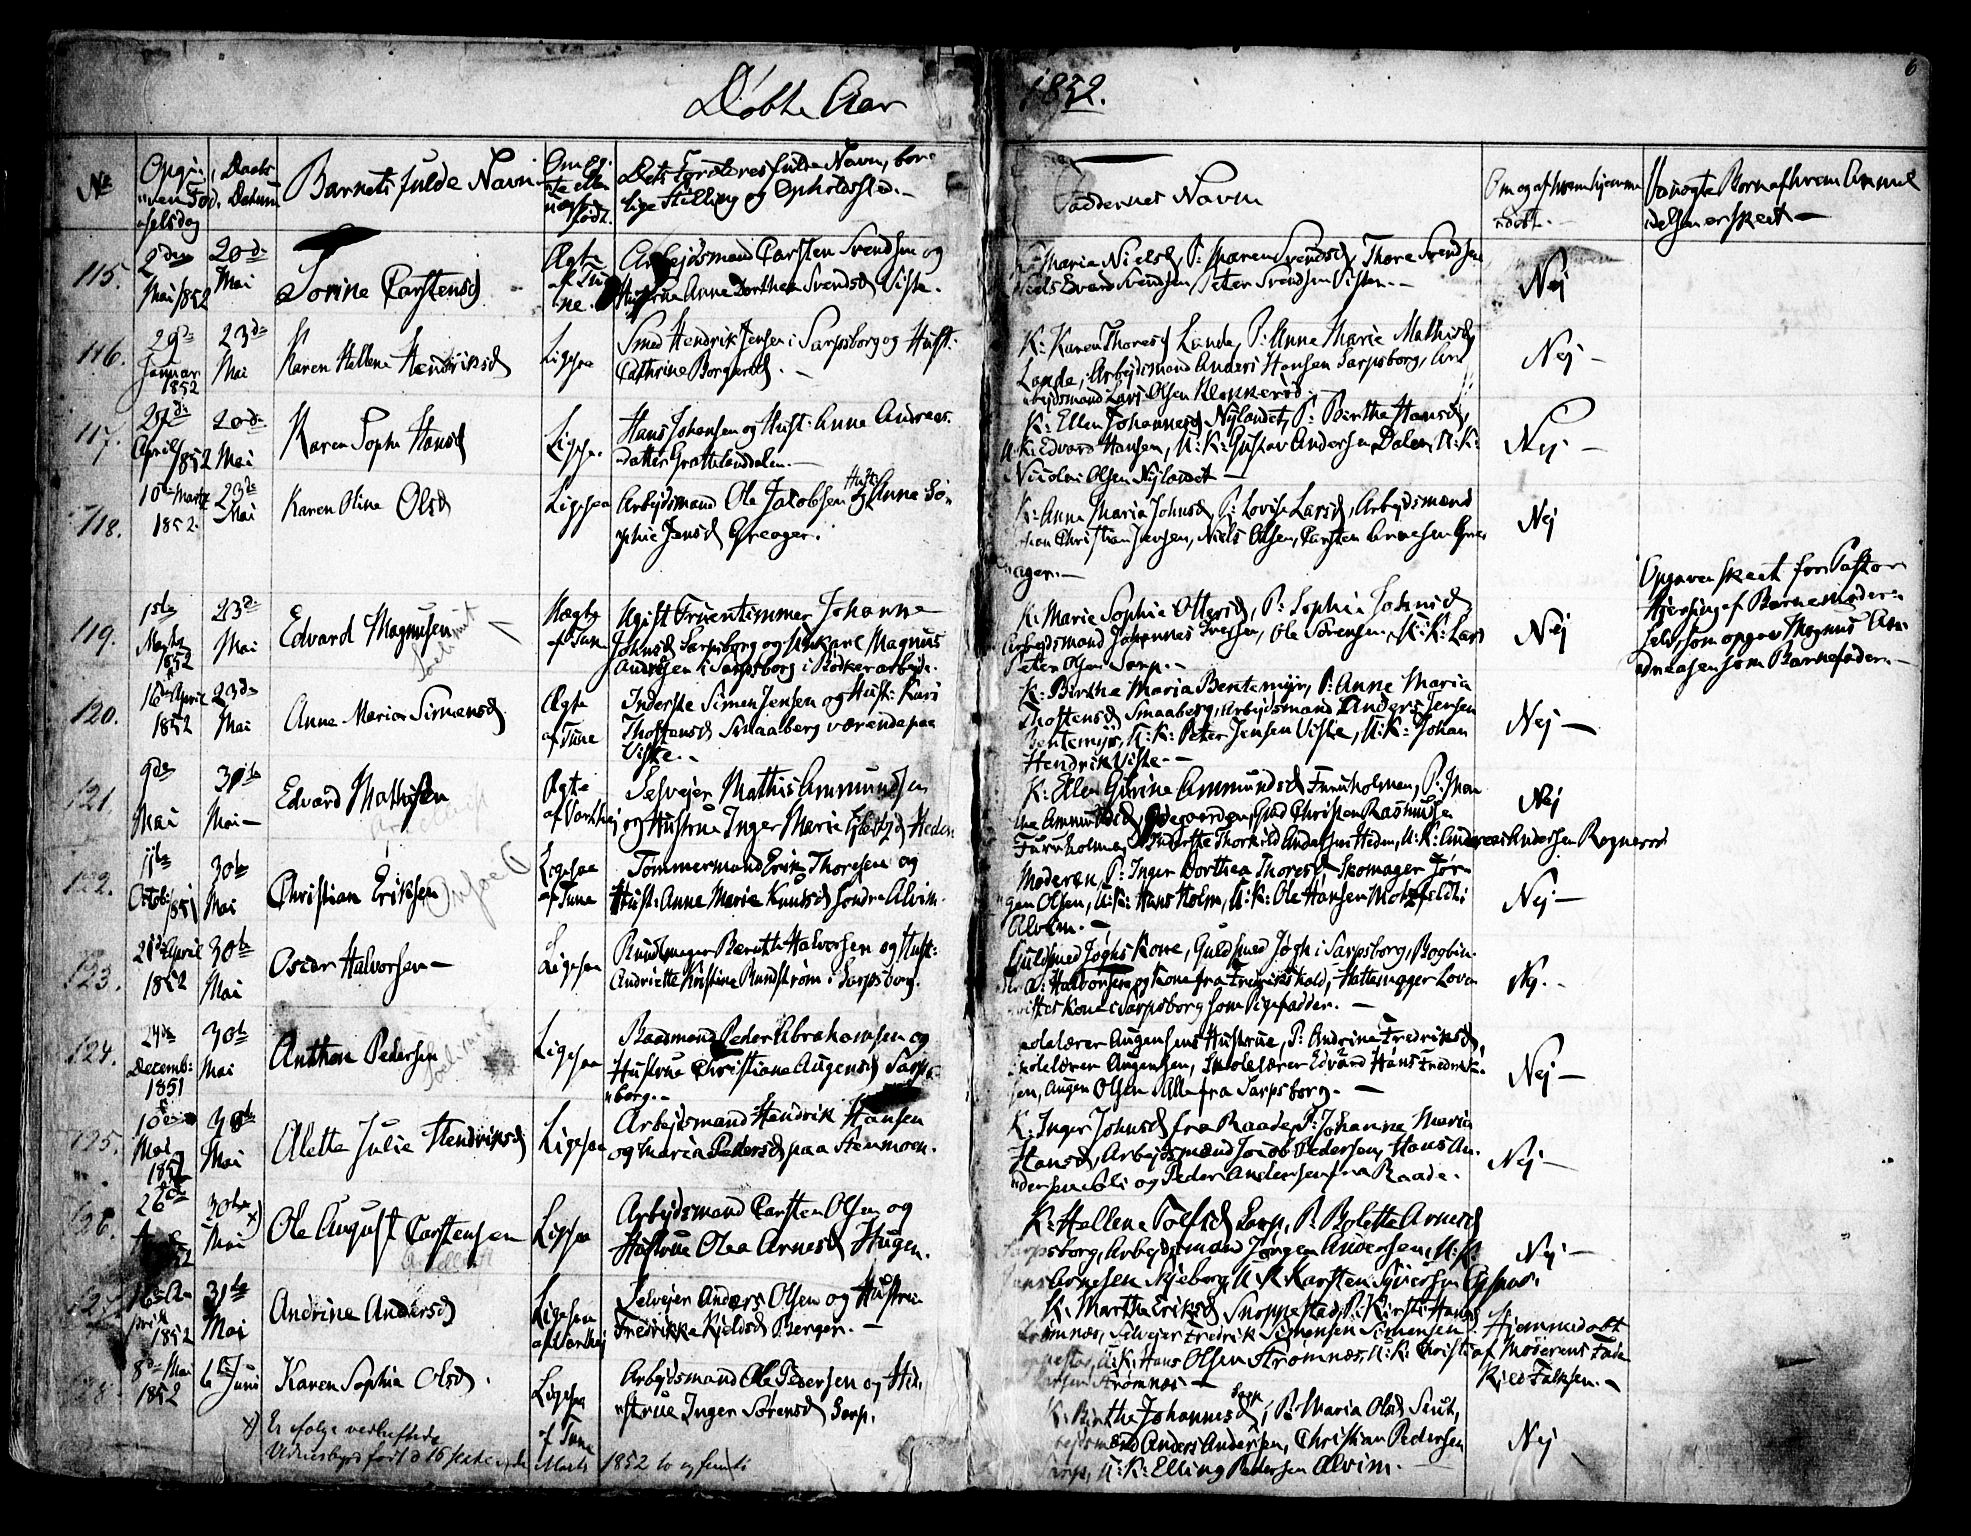 Døbte Aar 1852.
6
No
Opgi-
ven Fød-
selsdag
Daabs
Datum
Barnets fulde Navn
Om Eg-
te eller
uægte
født.
Dets Forældres fulde Navn, bor-
lige Stilling og Opholdssted.-
Faddernes Navn
Om og af hvem hjemme
døbt.-
Uægte Børn af hvem Anmel
delsen er skeet-
115.
2den
Mai 1852
20de
Mai
Sorine Carstensd
Ægte
af Tu
ne.
Arbejdsmand Carsten Svendsen og
Hustrue Anne Dorthea Svendsd Viste.
K: Maria Nielsd, P: Maren Svendsd, Thore Svendsen
Niels Edvard Svendsen, Peter Svendsen Visten.-
Nej
116.
29de
Januar
1852
23de
Mai
Karen Hellene Hendriksd
Ligesaa
Smed Hendrik Jensen i Sarpsborg og Hust:
Cathrine Borgersd.-
K: Karen Thoresd Lande, P: Anne Marie Mathisd
Lande, Arbejdsmand Anders Hansen Sarpsborg, Ar
bejdsmand Lars Olsen Klokkerød.-
Nej-
117.
27de
April 1852
20de
Mai
Karen Sophie Hansd
Ligesaa
Hans Johansen og Hust: Anne Andreas-
datter Grottelanddalen.-
K: Ellen Johannesd Nylandet, P: Birthe Hansd,
U: K: Edvard Hansen, U: K: Gustav Andersen Dalen, U: K:
Nicolai Olsen Nylandet-
Nej-
118.
10de Marts
1852.
23de
Mai
Karen Oline Olsd
Ligesaa
Arbejdsmand Ole Jakobsen og Hust: Anne So-
phie Jensd Greager.
K: Anne Maria Johnsd, P: Lovise Larsd, Arbejdsmænd
Johan Christian Jensen, Niels Olsen, Carsten Arnesen Gre
ager.-
Nej
119.
1ste
Martz
1852
23de
Mai
Edvard Magnusen
Uægte
af Tune
Ugift Fruentimmer Johanne
Johnsd Sarpsborg og Unkarl Magnus
Andersen i Sarpsborg i Bødkerarbejde.
K: Marie Sophie Ottersd, P: Sophie Johnsd
Arbejdsmand Johannes Iversen, Ole Sørensen, U: K: Lars
Peter Olsen Sarp.-
Nej
Opgaven skeet for Pastor
Hjersing af Barnemoder-
selv, som opgav Magnus An-
dreasen som Barnefader.-
120.
16de April
1852
23de
Mai
Anne Maria Simensd
Ægte
af Tune
Inderste Simen Jensen og Hust: Kari
Thostensd Smaaberg værende paa
Viste.-
K: Birthe Maria Bentemyr, P: Anne Maria
Thostensd Smaaberg, Arbejdsmand Anders Jensen
Bentemyr, U: K: Peter Jensen Viste, U: K: Johan
Hendrik Viste.-
Nej-
121.
9de
Mai
31te
Mai-
Edvard Mathisen
Ægte
af Varteig
Selvejer Mathis Ammundsen
og Hustrue Inger Marie Heden
K: Ellen Gurine Ammundsd Furuholmen, P: Mar
the Ammundsd, Gaard Christen Rasmussen
Furuholmen, Inderste Thorkild Andersen Heden, U: K: Andreas Andersen Rognerød
Nej
122.
11te
Octob: 1851
30te
Mai
Christian Eriksen
Ligesaa
af Tune
Tømmermand Erik Thoresen og
Hust: Anne Marie Knudsd Søndre Alvim.
Moderen, P: Inger Dorthea Thoresd, Skomager Jør-
gen Olsen, U: K: Hans Holm, U: K: Ole Hansen Motzfeldt i
Alvim.-
Nej-
123.
21de April
1852
30te
Mai
Oscar Halvorsen-
Ligesaa
Bundtmager Bernth Halvorsen og Hust:
Andriette Kristine Rundstrøm i Sarpsborg.
Guldsmed Joghs Kone, Guldsmed Jogh i Sarpsborg, Bogbin-
der A. Halvorsen og Kone fra Fredrikshald, Hattemager Loven
Kone i Sarpsborg som Pigefadder.-
Nej.-
124.
24de
Decemb:
1851
30te
Mai
Anthon Pedersen
Ligesaa
Baadsmand Peder Abrahamsen og
Hustrue Christiane Augensd Sarps-
borg.-
Skolelærer Augensens Hustrue, P: Andrine Fredriksd,
Skolelærer Augensen, Skolelærer Edvard Hans Fredrik
sen, Augen Olsen Alle fra Sarpsborg.-
Nej-
125.
10de
Mai
1852
30te
Mai
Alette Julie Hendriksd
Ligesaa
Arbejdsmand Hendrik Hansen
og Maria Pedersd paa Stenmoen.
K: Inger Johnsd fra Raade, P: Johanne Maria
Hansd, Arbejdsmænd Jacob Pedersen, Hans An-
dersen og Peder Andersen fra Raade.
Nej-
126.
26de
30te x)
Mai
Ole August Carstensen
Ligesaa
Arbejdsmand Carsten Olsen og
Hustrue Olea Arnesd Hugen.
K: Hellene Tolfsd Sarp, P: Bolette Arnesd
Sarpsborg, Arbejdsmand Jørgen Andersen, U: K:
Hans Arnesen Skjeberg, U: K: Karsten Syversen
Nej-
127.
16de A-
pril
1852
31te
Mai
Andrine Andersd
Ligesaa
af Varteig
Selvejer Anders Olsen og Hustrue
Fredrikke Kieldsd Berger.-
K: Marthe Eriksd Snoppestad, P: Kirsti Hansd
Strømnæs, Selvejer Fredrik Simensen
U: K: Hans Olsen Strømnæs, U: K: Christ
Strømnæs-
Hjemmedøbt
af Moderens Fader
Kield Falksen.-
128.
8de Mai
1852
6te Juni
Karen Sophia Olsd.
Ligesaa
af Tune
Arbejdsmand Ole Pedersen og Hu-
strue Inger Sørensd Sarp.
K: Birthe Johannesd Sarp, P: Maria Olsd Sent,
Arbejdsmænd Anders Andersen, Christian Pedersen
Sarp, U: K: Elling Pedersen Alvim.-
Nej
x) Er ifølge vedheftede
Vidnesbyrd født d 16 Marts 1852